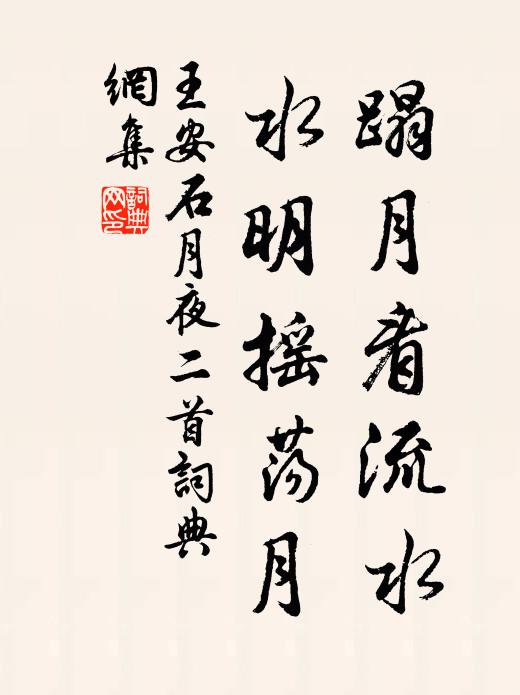 蹋月看流水
水明摇荡月
王安石月夜二首詞典
網集
詞典
网印